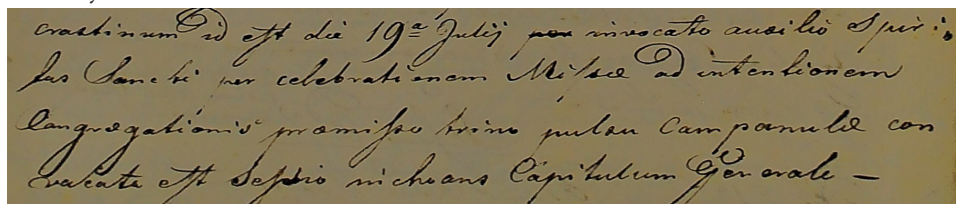 crastinum id est die 19ª Julij invocato auxilio Spiri:
tus Sancti per celebrationem Missæ ad intentionem
Congregationis præmisso trino pulsu Campanulæ con
vocata est Sessio inchoans Capitulum Generale —